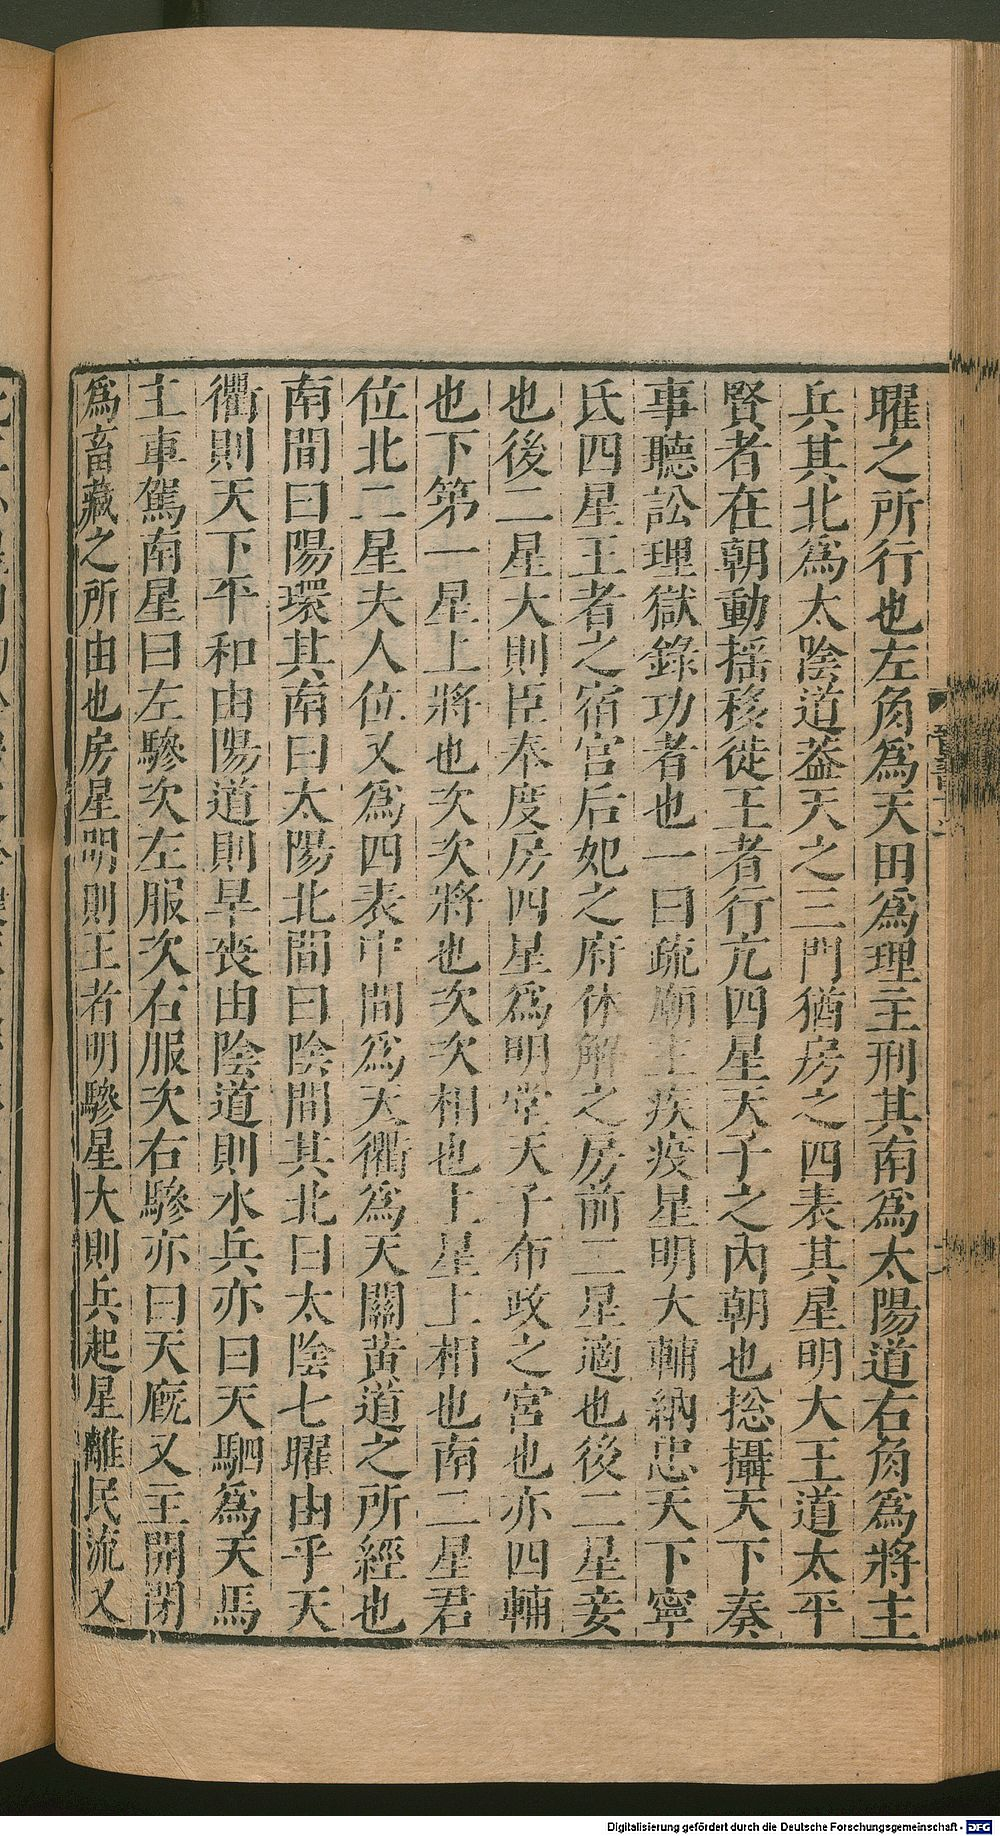 曜之所行也左角爲天田爲理主刑其南爲太陽道右角爲將主
兵其北爲太陰道葢天之三門猶房之四表其星明大王道太平
賢者在朝動揺移徙王者行亢四星天子之內朝也捴攝天下奏
事聽訟理獄錄功者也一曰疏廟主疾疫星明大輔納忠天下寧
氐四星王者之宿宮后妃之府休解之房前二星適也後二星妾
也後二星大則臣奉度房四星爲明堂天子布政之宮也亦四輔
也下第一星上將也次次將也次次相也上星上相也南二星君
位北二星夫人位又爲四表中間爲天衢爲天關黃道之所經也
南間曰陽環其南曰太陽北間曰陰間其北曰太陰七曜由乎天
衢則天下平和由陽道則旱喪由陰道則水兵亦曰天駟爲天馬
主車駕南星曰左驂次左服次右服次右驂亦曰天廐又主開閉
爲畜藏之所由也房星明則王者明驂星大則兵起星離民流又
晉書十一
Digitalisierung gefördert durch die Deutsche Forschungsgemeinschaft - DFG